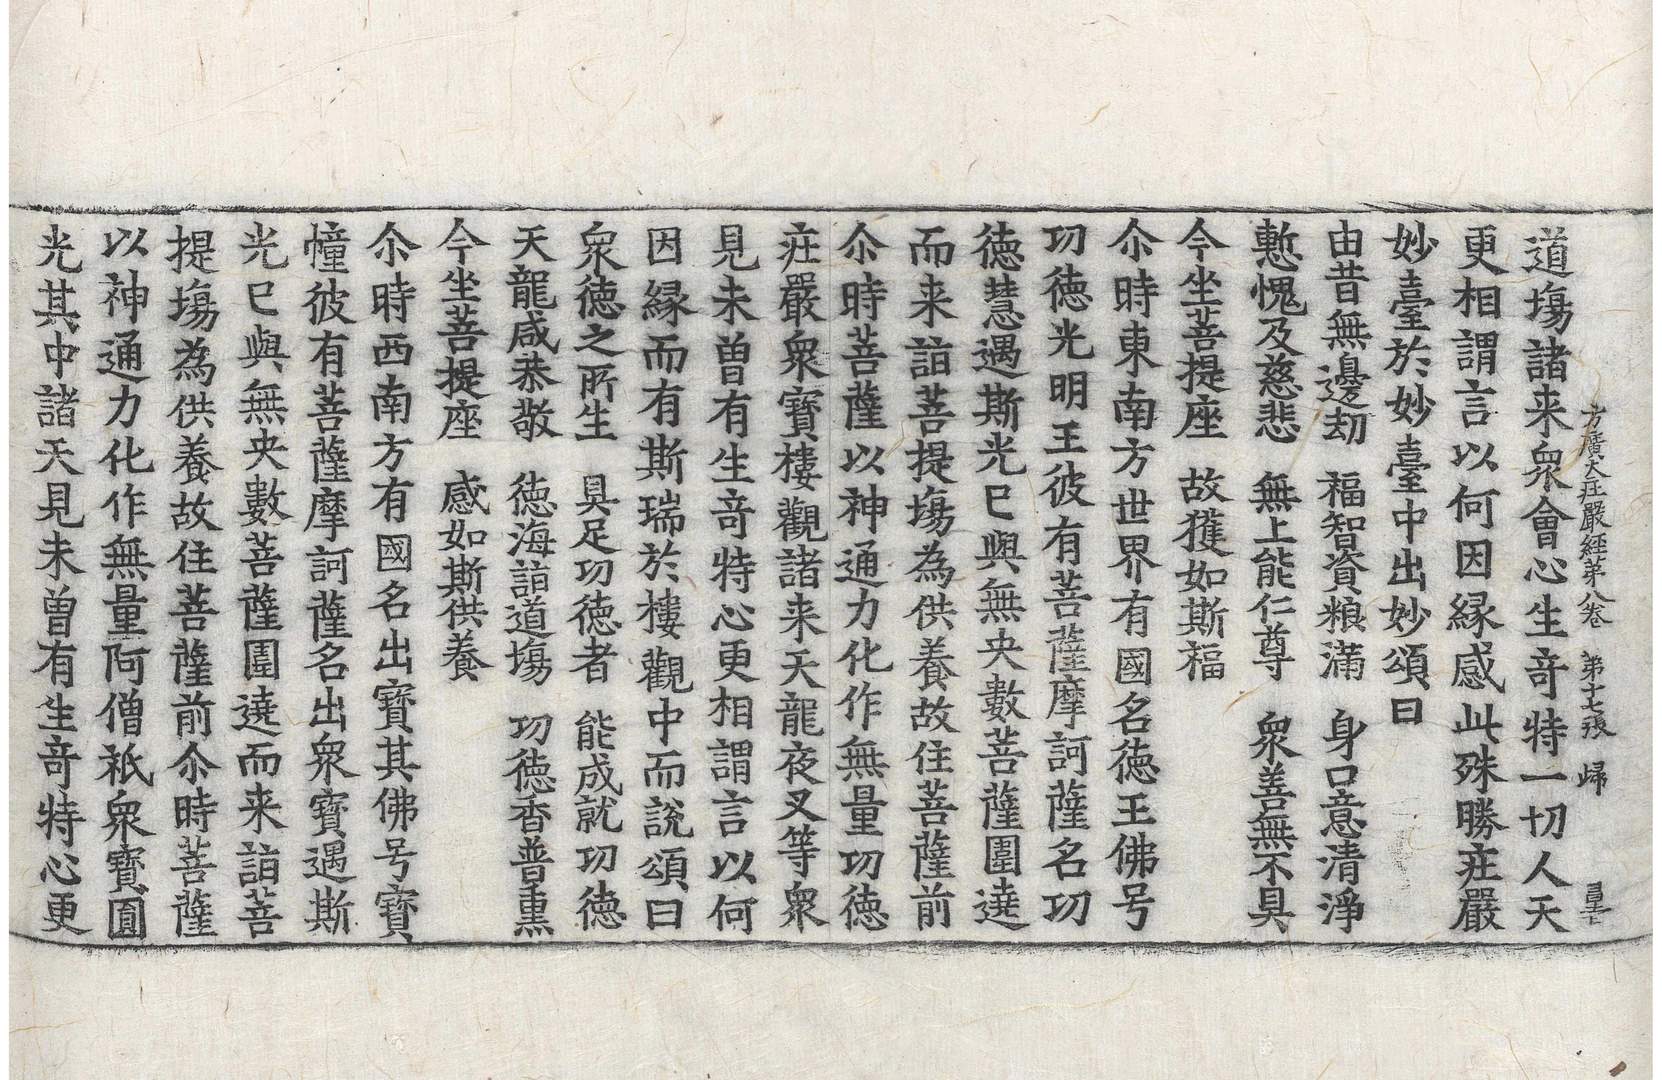 方廣大莊嚴經苐八卷 苐十七張 歸
道塲諸来衆會心生竒特一切人天
更相謂言以何因縁感此殊勝莊嚴
妙臺於妙臺中出妙頌曰
由昔無邊劫 福智資粮滿 身口意清淨
慙愧及慈悲 無上能仁尊 衆善無不具
今坐菩提座 故獲如斯福
尒時東南方世界有國名德王佛号
功德光明王彼有菩薩摩訶薩名功
德慧遇斯光已與無央數菩薩圍遶
而来詣菩提塲為供養故住菩薩前
尒時菩薩以神通力化作無量功德
莊嚴衆寶樓觀諸来天龍夜叉等衆
見未曽有生竒特心更相謂言以何
因縁而有斯瑞於樓觀中而說頌曰
衆德之所生 具足功德者 能成就功德
天龍咸恭敬 德海詣道塲 功德香普熏
今坐菩提座 感如斯供養
尒時西南方有國名出寶其佛号寶
幢彼有菩薩摩訶薩名出衆寶遇斯
光已與無央數菩薩圍遶而来詣菩
提塲為供養故住菩薩前尒時菩薩
以神通力化作無量阿僧祇衆寶圓
光其中諸天見未曽有生竒特心更